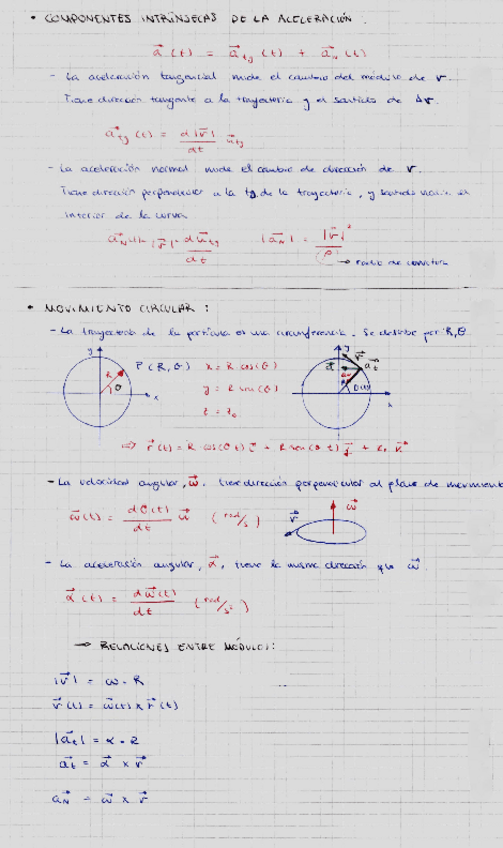 • COMPONENTES INTRÍNSECAS DE LA ACELERACIÓN.
a⃗(t) = a⃗tg(t) + a⃗n(t)
- La aceleración tangencial mide el cambio del módulo de v.
Tiene dirección tangente a la trayectoria y el sentido de Δv.
a⃗tg(t) = d|v⃗|/dt u⃗tg
- La aceleración normal mide el cambio de dirección de v.
Tiene dirección perpendicular a la tg. de la trayectoria, y sentido hacia el
interior de la curva
|v⃗| · du⃗tg/dt |a⃗N| = |v⃗|²/ρ
→ radio de curvatura
• MOVIMIENTO CIRCULAR:
- La trayectoria de la partícula es una circunferencia. Se describe por R,θ
y R θ x P(R, θ) x = R cos(θ) y x
y = R sen(θ)
z = z₀
⇒ r⃗(t) = R cos(θt) i⃗ + R sen(θt) j⃗ +
- La velocidad angular, ω⃗. tiene dirección perpendicular al plano de movimiento
ω⃗(t) = dθ(t)/dt u⃗ (rad/s) v⃗ ω⃗
- La aceleración angular, α⃗, tiene la misma dirección que ω⃗.
α⃗(t) = dω⃗(t)/dt (rad/s²)
→ RELACIONES ENTRE MÓDULOS:
|v⃗| = ω · R
v⃗(t) = ω⃗(t) × r⃗(t)
|a⃗t| = α · R
a⃗t = α⃗ × r⃗
a⃗N = ω⃗ × v⃗